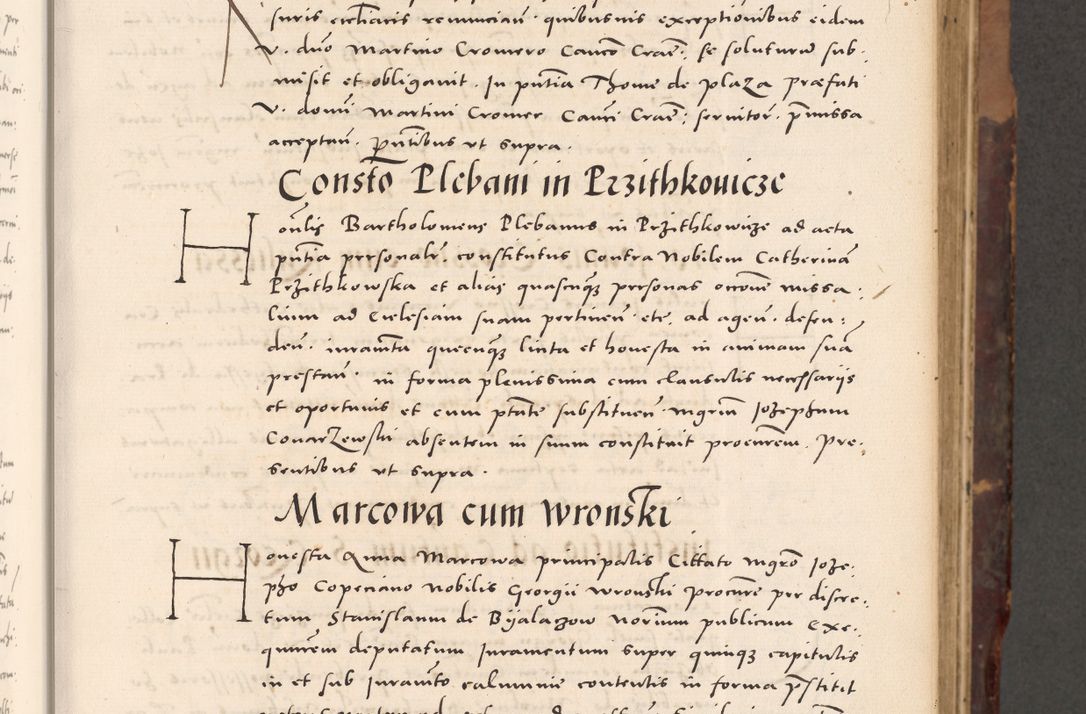 Juris eccliacis renunciavit quibusvis exceptionibus eidem
V. dno Martino Cromero Canco Crac: se soluturum sub-
misit et obligavit. In pntia Thome de plaza præfati
V. domi Martini Cromer Canci Crac: servitor. pmissa
acceptan. pntibus ut supra.
Consto Plebani in Przithkouicze
Honlis Bartholomeus Plebanus in Przithkowicze ad acta
pntia personalr. constitutus Contra Nobilem Catherinã
Przithkowska et alias quascunq3 personas occone missa:
lium ad Ecclesiam suam pertinen. etc. ad agen. defen:
den. iuramta quecunq3 licita et honesta in animam suã
prestan. in forma plenissima cum clausulis necessariis
et oportunis et cum ptate substituen. mgrum Jozephum
Conarzewski absentem in suum constituit procurem. Pre-
sentibus ut supra.
Marcowa cum Wronski
Honesta Anna Marcowa principalis Cittato mgro Joze-
pho Copeciano Nobilis Georgii Wronski procure per discre-
tum Stanislaum de Byalaczow Norium publicum Exe-
quutem deputatum Juramentum super quinq3 capitulis
in et sub Juramto calumnie contentis in forma pstitit